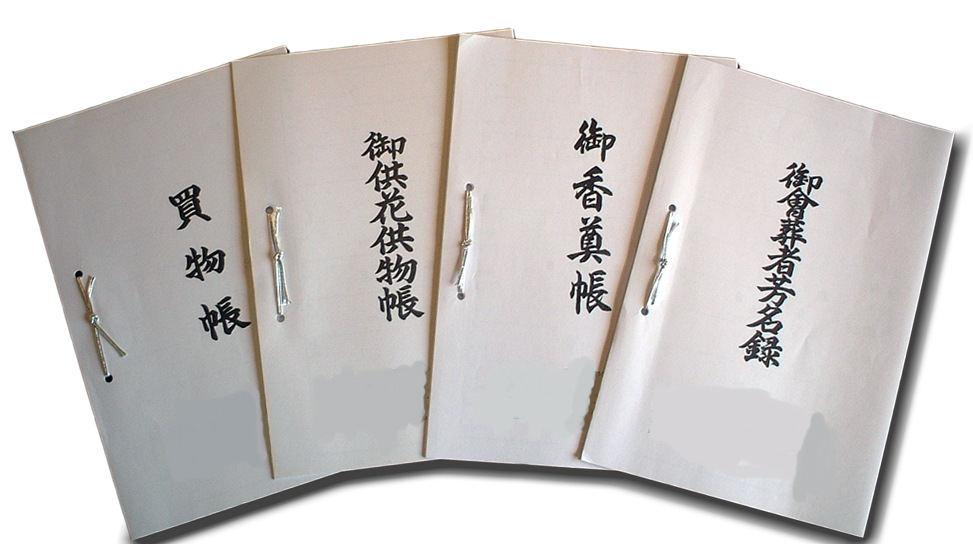 買物帳
御供花供物帳
御香奠帳
御會葬者芳名録